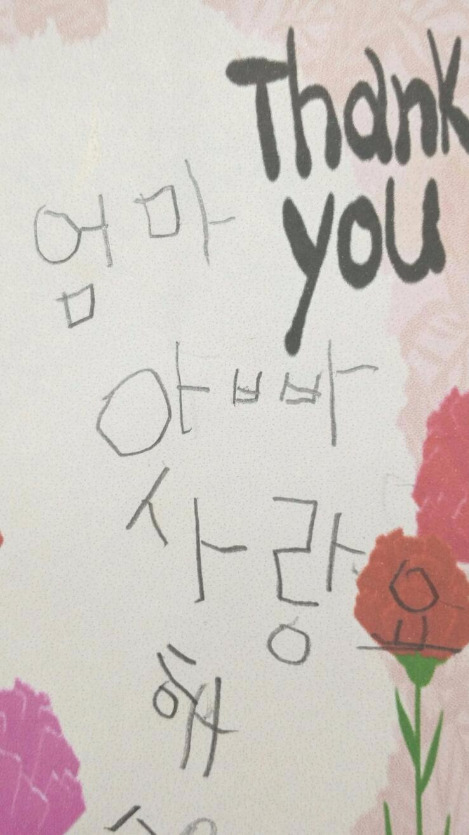 Thank
you
엄마
아빠
사랑
해요